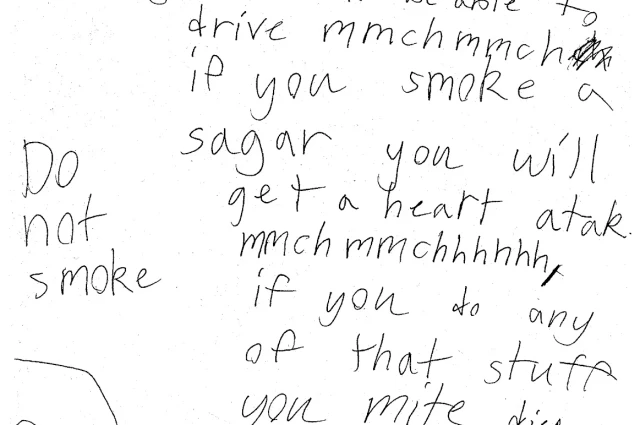 be able to
drive mmchmmch
if you smoke a
sagar you will
get a heart atak.
mmch mmchhhhhhh,
if you do any
of that stuff
you mite
Do
not
smoke